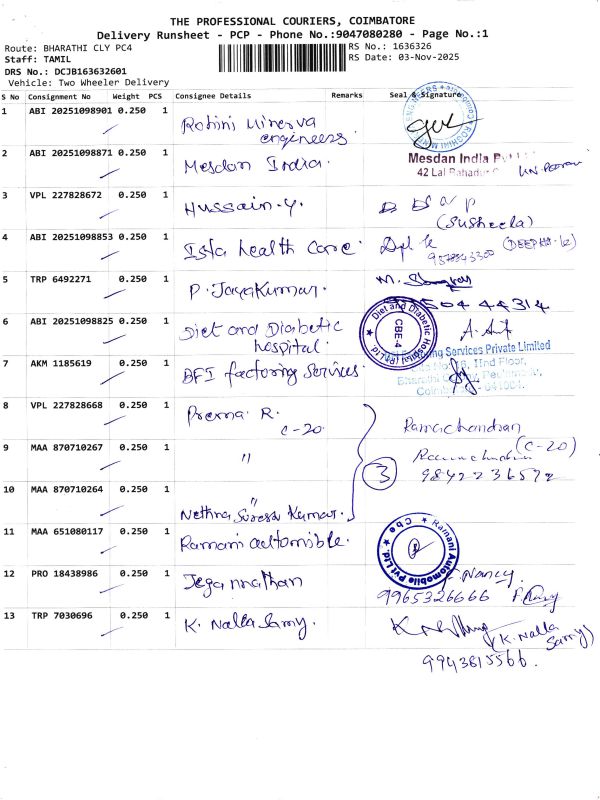 THE PROFESSIONAL COURIERS, COIMBATORE
Delivery Runsheet - PCP - Phone No.:9047080280 - Page No.:1
Route: BHARATHI CLY PC4
RS No.: 1636326
Staff: TAMIL
RS Date: 03-Nov-2025
DRS No.: DCJB163632601
Vehicle: Two Wheeler Delivery
S No Consignment No Weight PCS Consignee Details Remarks Seal & Signature
1 ABI 20251098901 0.250 1 Rohini Minerva
engineers.
2 ABI 20251098871 0.250 1 Mesdan India.
Mesdan India
42 Lal Bahadur
3 VPL 227828672 0.250 1 Hussain.y.
(Susheela)
4 ABI 20251098853 0.250 1 Ista health Care.
9578943300
5 TRP 6492271 0.250 1 P. JayaKumar. M.
50444314
6 ABI 20251098825 0.250 1 Diet and Diabetic
hospital.
Diet and Diabetic Hospital (P) Ltd.
CBE-4
7 AKM 1185619 0.250 1 BFI factoring Services.
Services Private Limited
IInd Floor,
8 VPL 227828668 0.250 1 Prema R.
C-20.
Ramachandran
(C-20)
9 MAA 870710267 0.250 1 "
3
9842236572
10 MAA 870710264 0.250 1 "
Nethra Suresh Kumar.
11 MAA 651080117 0.250 1 Ramani automible.
Ramani Automobile Pvt Ltd. Cbe
12 PRO 18438986 0.250 1 Jegannathan
Nancy.
9965326666
13 TRP 7030696 0.250 1 K. Nalla Samy.
(K. Nalla
Samy)
9943815566.